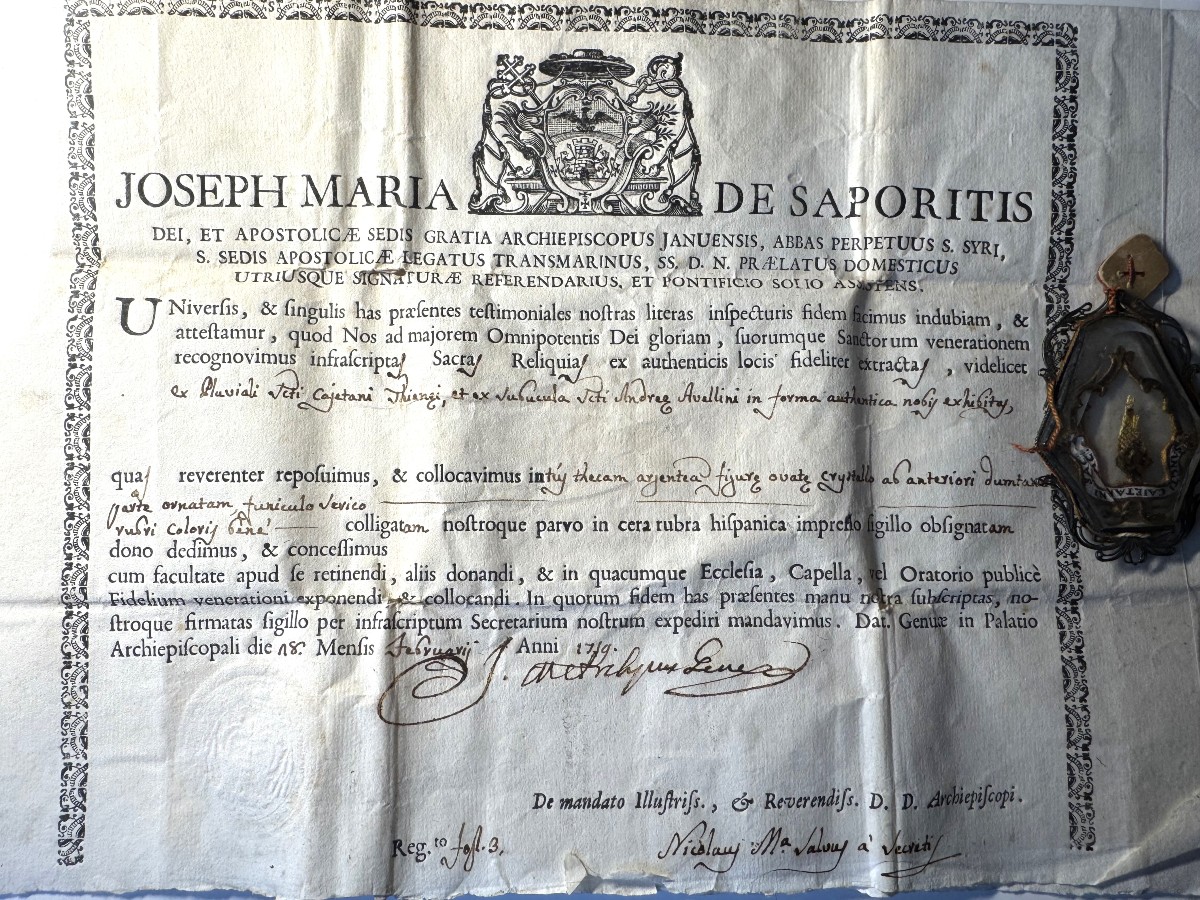 JOSEPH MARIA DE SAPORITIS
DEI, ET APOSTOLICÆ SEDIS GRATIA ARCHIEPISCOPUS JANUENSIS, ABBAS PERPETUUS S. SYRI,
S. SEDIS APOSTOLICÆ LEGATUS TRANSMARINUS, SS. D. N. PRÆLATUS DOMESTICUS
UTRIUSQUE SIGNATURÆ REFERENDARIUS, ET PONTIFICIO SOLIO ASSISTENS.
UNiverſis, & ſingulis has præſentes teſtimoniales noſtras literas inſpecturis fidem facimus indubiam, &
atteſtamur, quod Nos ad majorem Omnipotentis Dei gloriam, ſuorumque Sanctorum venerationem
recognovimus infraſcriptas Sacras Reliquias ex authenticis locis fideliter extractas, videlicet
ex Pluviali Scti Cajetani Thienei, et ex subucula Scti Andreę Avellini in forma authentica nobis exhibitas,
quas reverenter repoſuimus, & collocavimus intus thecam argenteā figurę ovatę crystallo ab anteriori dumtaxat
parte ornatam funiculo serico
rubri coloris bene colligatam noſtroque parvo in cera rubra hiſpanica impreſſo ſigillo obſignatam
dono dedimus, & conceſſimus
cum facultate apud ſe retinendi, aliis donandi, & in quacumque Eccleſia, Capella, vel Oratorio publicè
Fidelium venerationi exponendi, & collocandi. In quorum fidem has præſentes manu noſtra ſubſcriptas, no-
ſtroque firmatas ſigillo per infraſcriptum Secretarium noſtrum expediri mandavimus. Dat. Genuæ in Palatio
Archiepiſcopali die 18 Menſis Februarij Anni 1759.
J. M. Archiepus
De mandato Illuſtriſs., & Reverendiſs. D. D. Archiepiſcopi.
Reg.to fol. 3.
Nicolaus Ma. Salvus à Secretis
CAJETANI